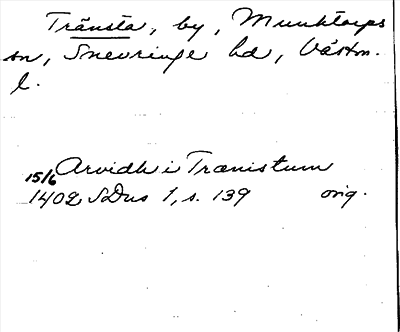 Tränsta, by, Munktorps
sn, Snevringe hd, Västm.
l.
Arvidh i Trænistum
15/6
1402 SDns 1, s. 139 orig.